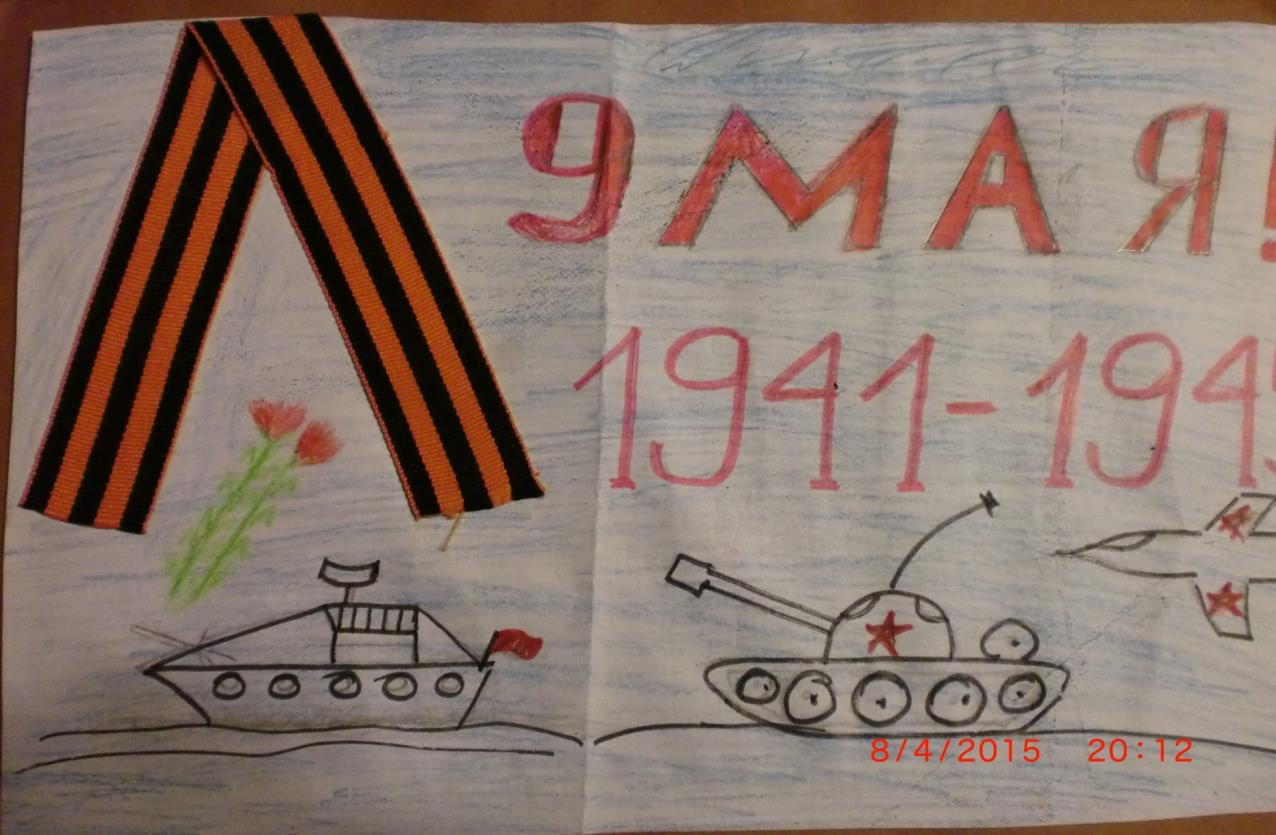 9 МАЯ!
1941-1945
8/4/2015 20:12